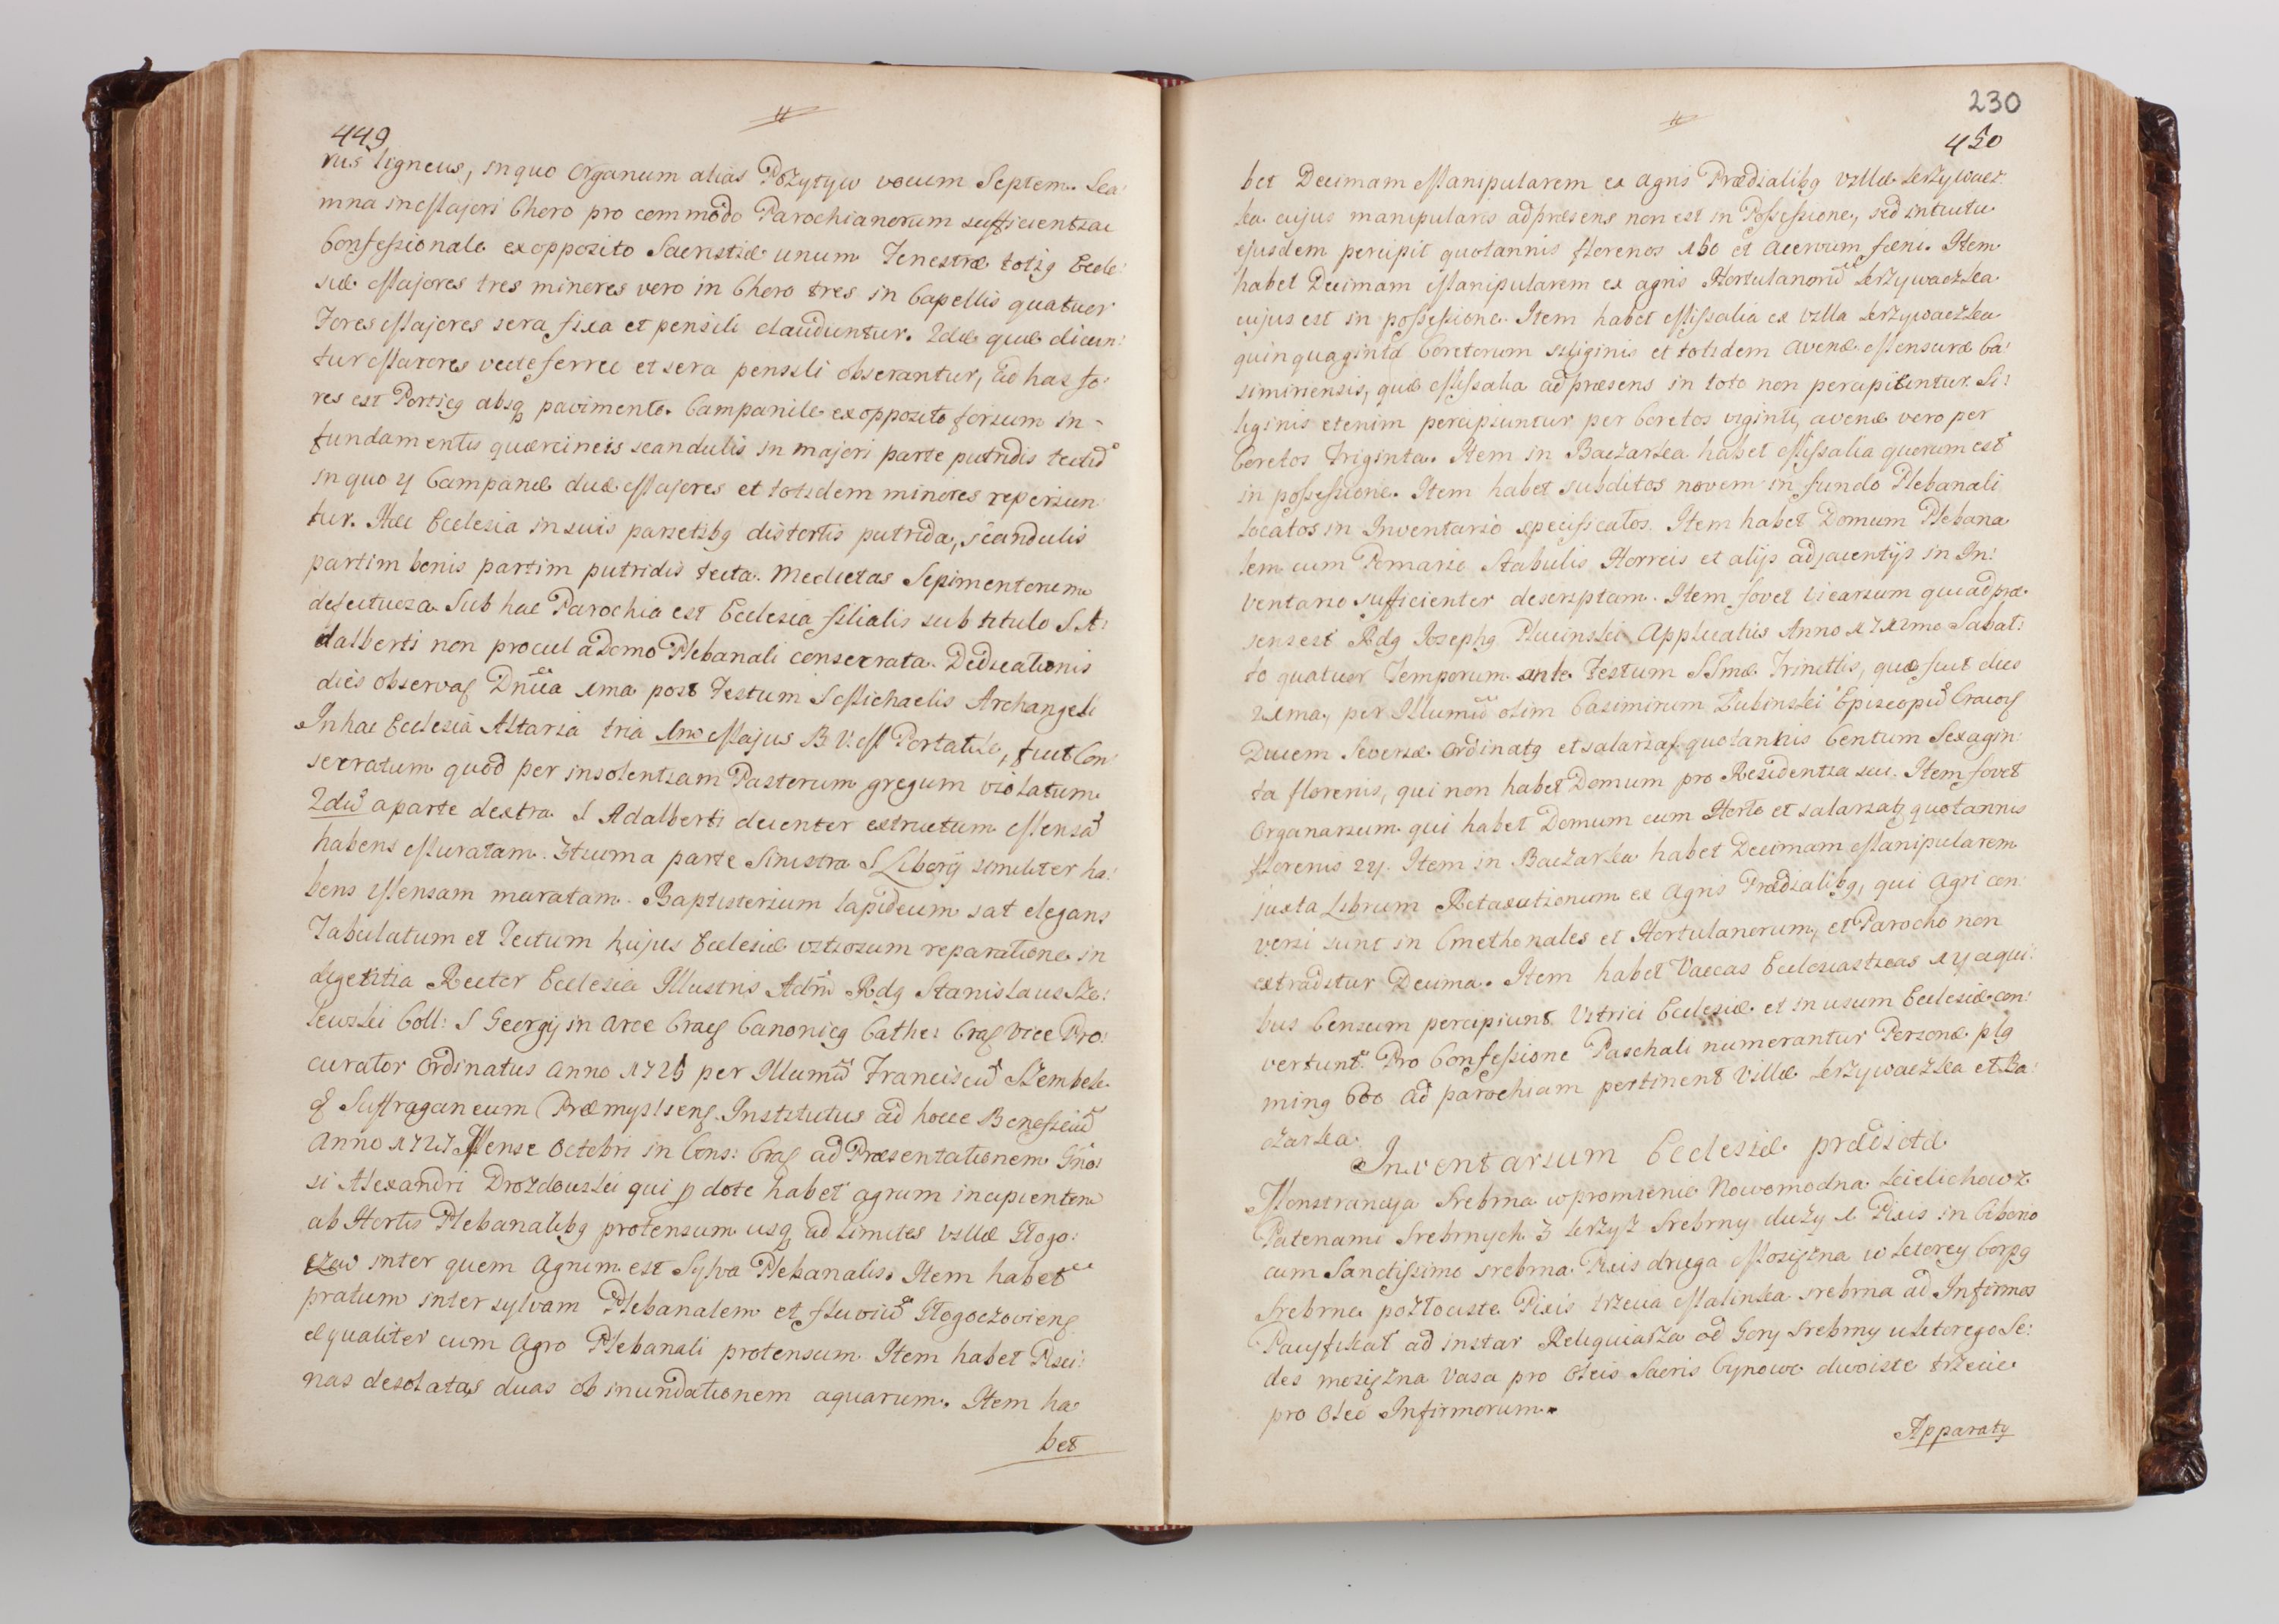 449
rus ligneus, in quo Organum alias Pozytyw vocum Septem. Sca:
mna in Majori Choro pro commodo Parochianorum sufficientia
Confessionale ex opposito Sacristiæ unum Fenestræ totig Eccle:
siæ Majores tres minores vero in Choro tres in Capellis quatuor
Fores Majores sera fixa et pensili clauduntur. 2dæ quæ dicun:
tur Maiores vecte ferreo et sera pensili obserantur, ad has fo:
res est Porticg absq pavimento. Campanile ex opposito forium in
fundamentis quærcineis scandulis in majori parte putridis tectū
in quo Campanæ duæ Majores et totidem minores reperiun:
tur. Hæc Ecclesia in suis parietibg distortis putrida, scandulis
partim bonis partim putridis tecta. Medietas Sepimentorum
defectuoza. Sub hac Parochia est Ecclesia filialis sub titulo S. A:
dalberti non procul a Domo Plebanali conserrata. Dedicationis
dies observaʃ Dnica 1ma post Festum S Michaelis Archangeli
In hac Ecclesia Altaria tria 1mo Majus B. V. M Portatile, fuit Con:
serratum quod per insolentiam Pastorum gregum violatum
2dū a parte dextra S Adalberti decenter extructum Mensā
habens Muratam. 3tium a parte Sinistra S Liborij similiter ha:
bens Mensam muratam. Baptisterium lapideum sat elegans
Tabulatum et Tectum hujus Ecclesiæ vitiosum reparatione in
digentia Rector Ecclesiæ Illustris Adm̄ Rdg Stanislaus Sze:
lewski Coll: S Georgij in Arce Cracʃ Canonicg Cathe: Cracʃ Vice Pro:
curator Ordinatus Anno 1725 per Illumū Franciscū Szembek
Suffraganeum Præmysliensʃ. Institutus ad hocce Beneficiū
Anno 1727 Mense Octobri in Cons: Cracʃ ad Præsentationem Gno:
si Alexandri Drozdowski qui ꝑ dote habet agrum incipientem
ab Hortis Plebanalibg protensum usq ad limites Villæ Głogo:
czow inter quem Agrum est Sylva Plebanalis. Item habet
pratum inter sylvam Plebanalem et fluviū Głogoczoviensʃ
æqualiter cum Agro Plebanali protensum. Item habet Pisci:
nas desolatas duas ob inundationem aquarum. Item ha
bet
230
450
bet Decimam Manipularem ex agris Prædialibg Villæ Krzywacz
ka cujus manipularis ad præsens non est in Possessione, sed intuitu
ejusdem percipit quotannis florenos 150 et Acervum fæni. Item
habet Decimam Manipularem ex agris Hortulanorū Krzywaczka
cujus est in possessione. Item habet Missalia ex Villa Krzywaczka
quinquaginta Coretorum siliginis et totidem Avenæ Mensuræ Ca:
simiriensis, quæ Missalia ad præsens in toto non percipiuntur. Si:
liginis etenim percipiuntur per Coretos viginti, avenæ vero per
Coretos Triginta. Item in Baczarka habet Missalia quorum est
in possessione. Item habet subditos novem in fundo Plebanali
locatos in Inventario specificatos. Item habet Domum Plebana
lem cum Pomario Stabulis Horreis et alijs adjacentijs in In:
ventario sufficienter descriptam. Item fovet Vicarium qui ad præ
sens est Rdg Josephg Plucinski Applicatus Anno 1712mo Sabat:
to quatuor Temporum ante Festum SSmæ Trinittis, quæ fuit dies
21ma, per Illumū olim Casimirum Łubinski Episcopū Cracovʃ
Ducem Severiæ Ordinatg et salariaʃ quotannis Centum Sexagin:
ta florenis, qui non habet Domum pro Residentia sui. Item fovet
Organarium qui habet Domum cum Horto et salariatg quotannis
florenis 24. Item in Baczarka habet Decimam Manipularem
juxta Librum Retaxationum ex Agris Prædialibg, qui Agri con:
versi sunt in Cmethonales et Hortulanorum, et Parocho non
extraditur Decima. Item habet Vaccas Ecclesiasticas 14 a qui:
bus Censum percipiunt Vitrici Ecclesiæ et in usum Ecclesiæ con:
vertunt. Pro Confessione Paschali numerantur Personæ plg
ming 600 ad parochiam pertinent Villæ Krzywaczka et Ba:
czarka.
Inventarium Ecclesiæ prædictæ
Monstrancya Srebrna w promienie Nowomodna Kielichow z
Patenami Srebrnych 3 Krzyż Srebrny duży 1 Pixis in Ciborio
cum Sanctissimo srebrna. Pixis druga Mosiężna w ktorey Corpg
Srebrne pozłociste Pixis trzecia Malinka srebrna ad Infirmos
Pacyfikał ad instar Reliquiarza od Gory Srebrny u ktorego Se:
des mosiężna Vasa pro Oleis Sacris Cynowe dwoiste trzecie
pro Oleo Infirmorum.
Apparaty